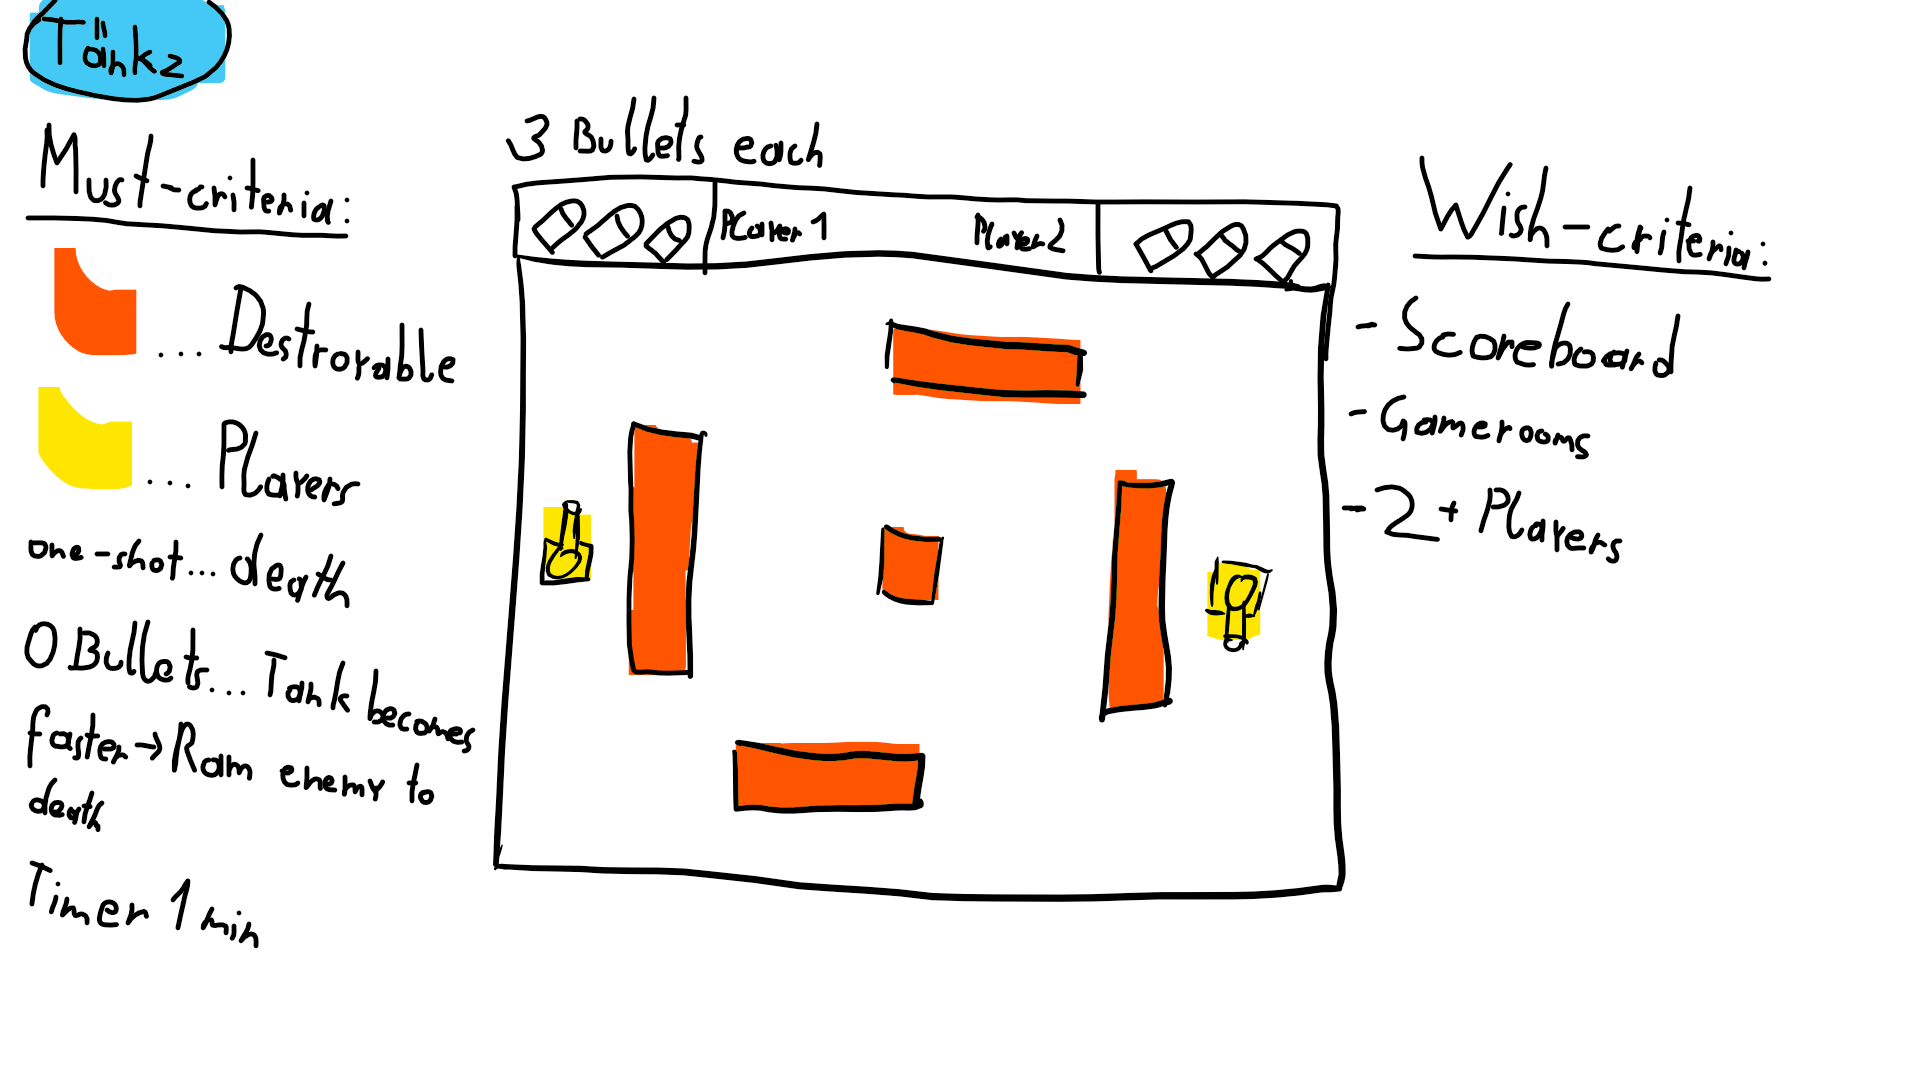 Tänkz
Must-criteria:
... Destroyable
... Players
one-shot... death
0 Bullets... Tank becomes
faster → Ram enemy to
death
Timer 1 min
3 Bullets each
Player 1
Player 2
Wish-criteria:
- Scoreboard
- Gamerooms
- 2+ Players